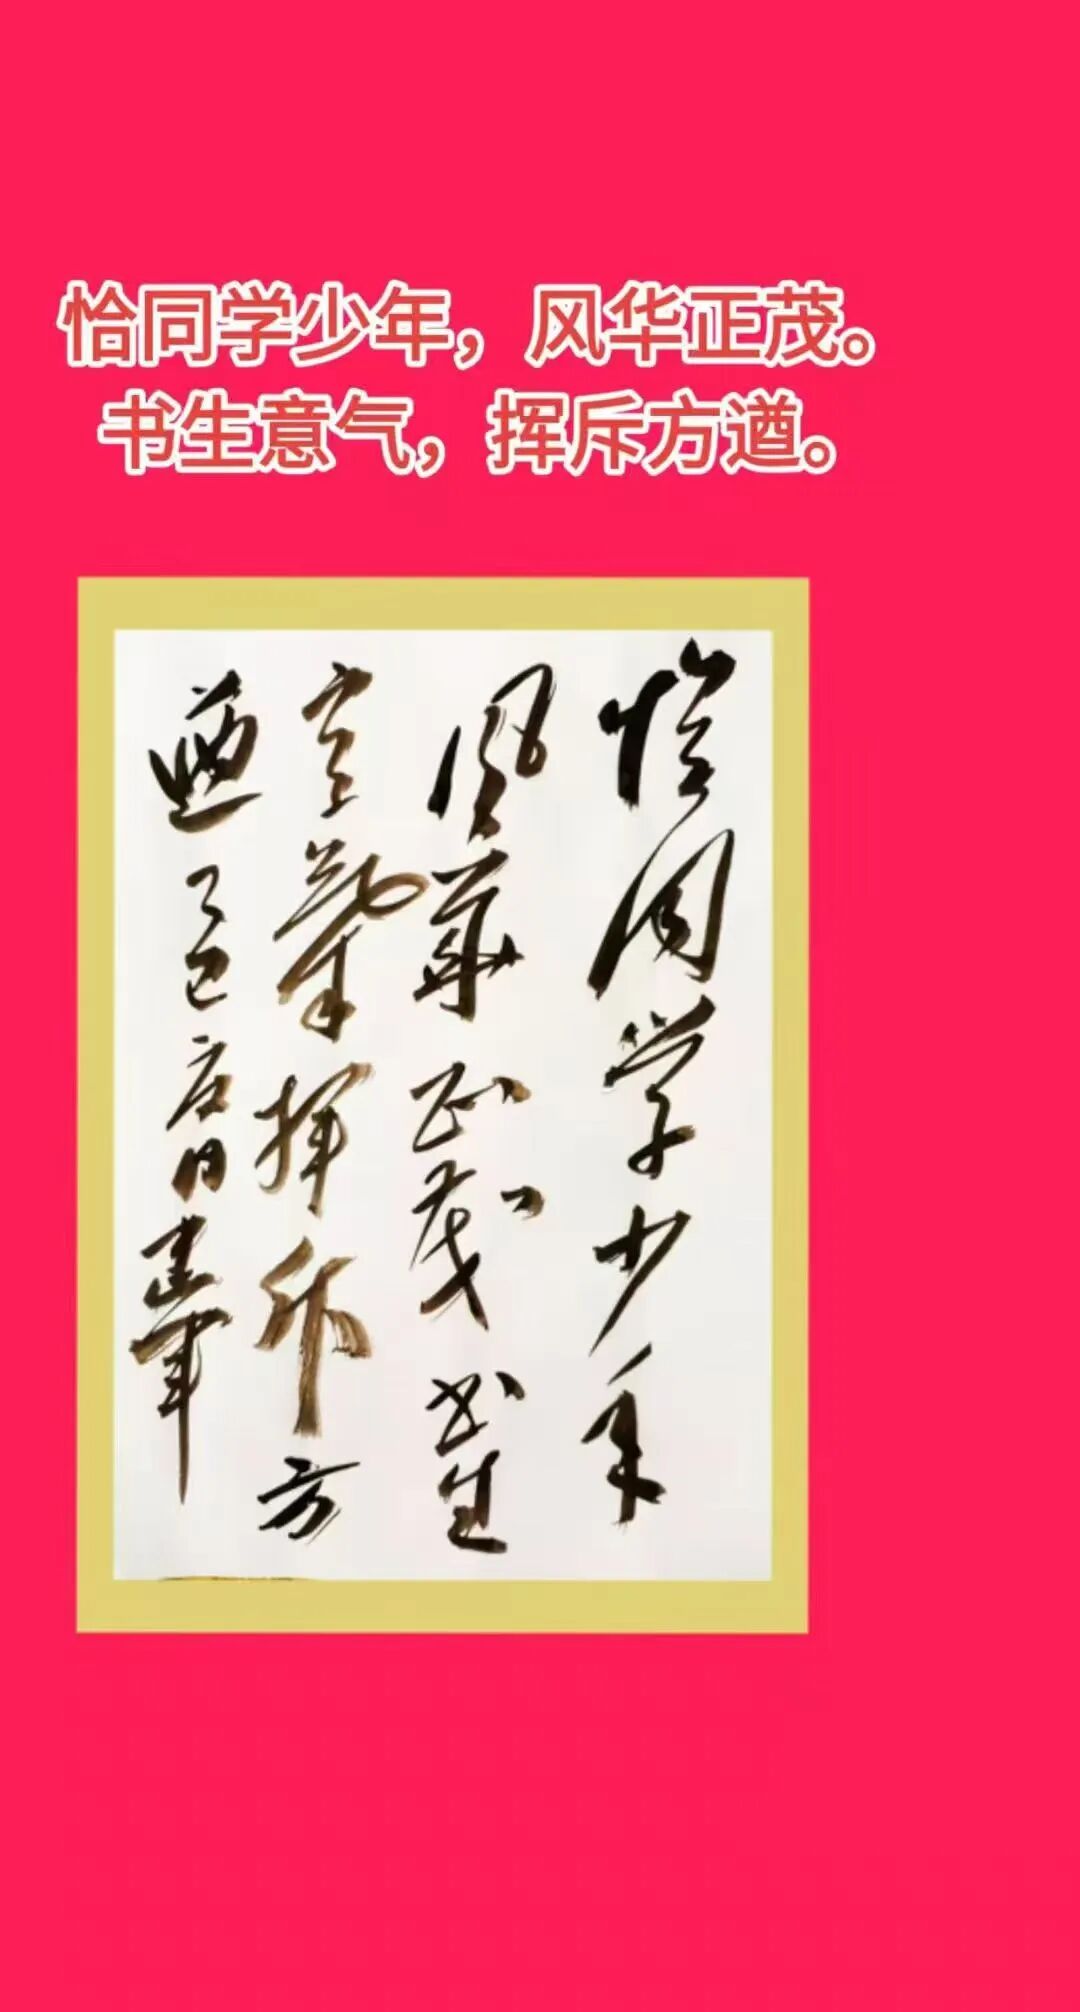 恰同学少年，风华正茂。
书生意气，挥斥方遒。
恰同学少年
風華正茂书生
意氣揮斥方
遒乙巳夏月建軍